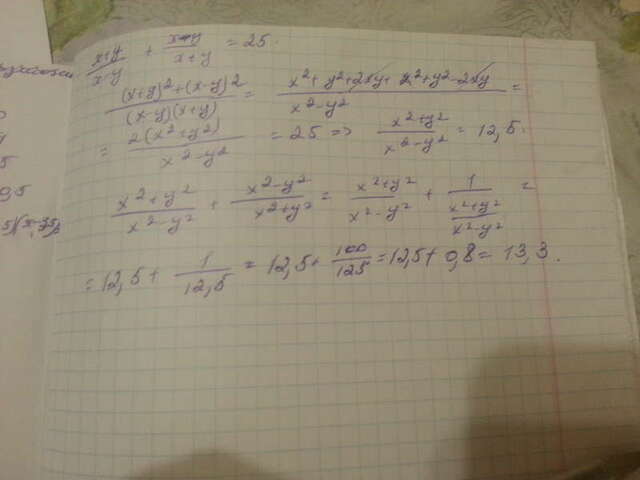 x+y/x-y + x-y/x+y = 25.
(x+y)²+(x-y)2/(x-y)(x+y) = x²+y²+2xy+x²+y²-2xy/x²-y² =
= 2(x²+y²)/x²-y² = 25 => x²+y²/x²-y² = 12,5.
x²+y²/x²-y² + x²-y²/x²+y² = x²+y²/x²-y² + 1/x²+y²/x²-y² =
= 12,5 + 1/12,5 = 12,5 + 100/125 = 12,5 + 0,8 = 13,3.